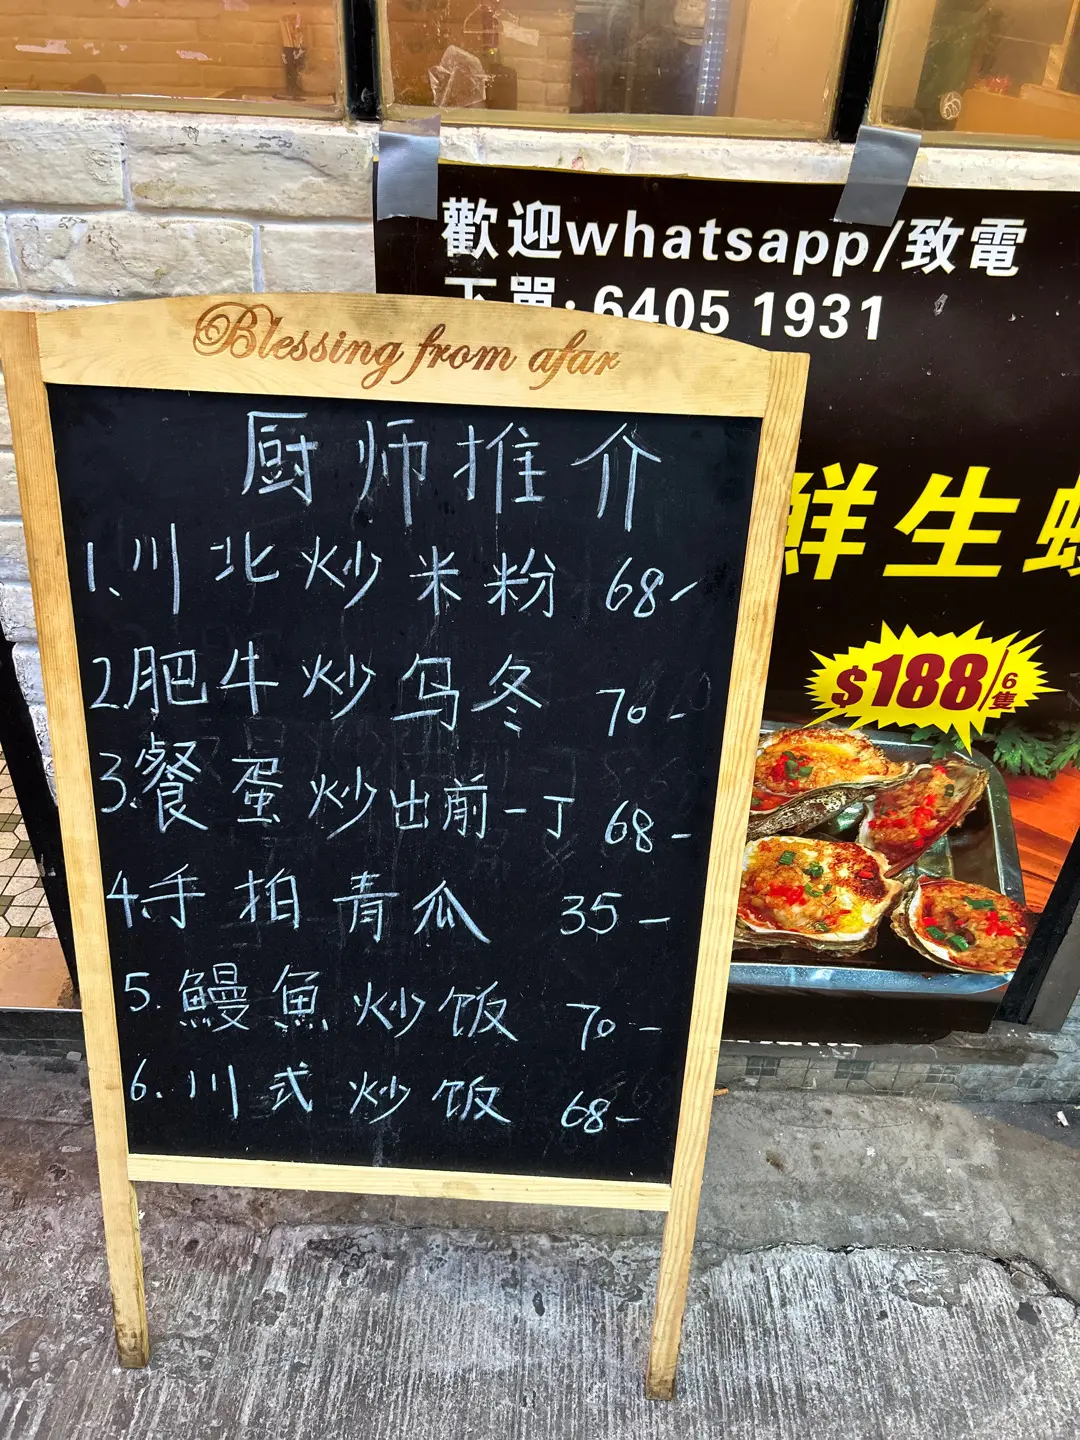 歡迎whatsapp/致電
下單: 6405 1931
Blessing from afar
厨师推介
1.川北炒米粉 68-
2.肥牛炒乌冬 70-
3.餐蛋炒出前一丁 68-
4.手拍青瓜 35-
5.鰻魚炒饭 70-
6.川式炒饭 68-
鮮生
$188/6隻